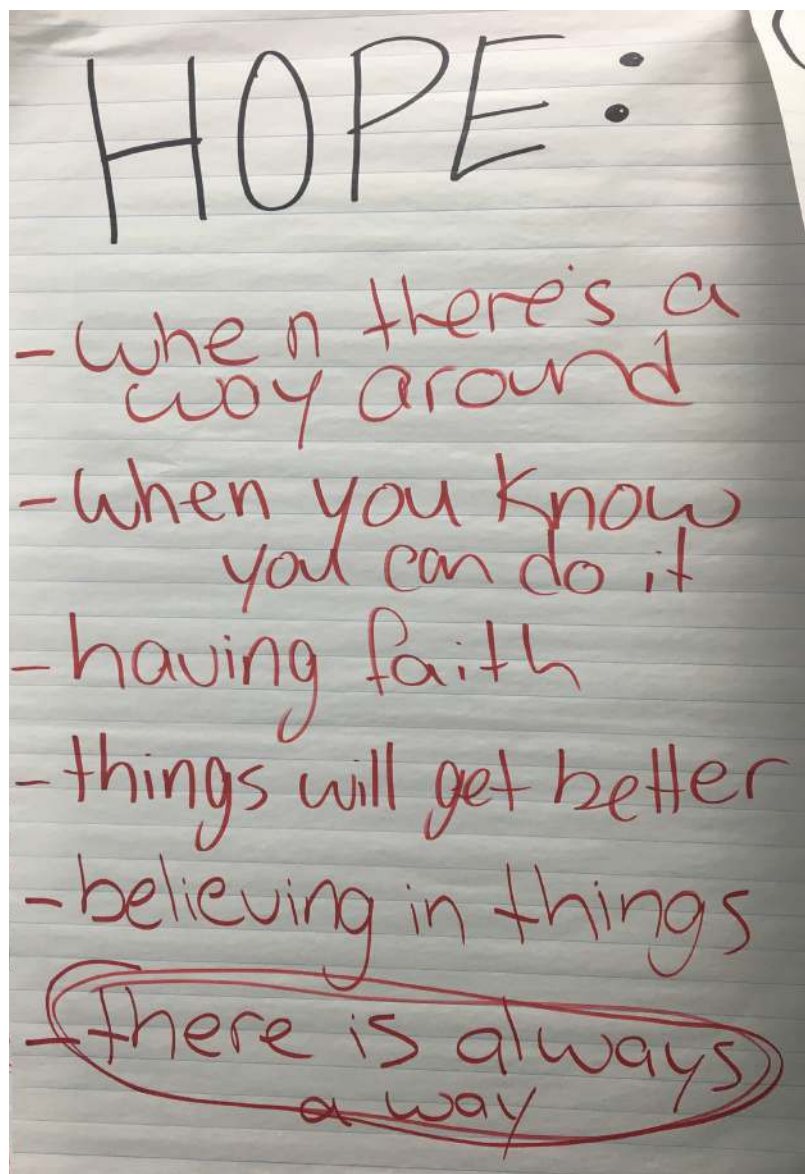 HOPE:
- when there's a
way around
- when you know
you can do it
- having faith
- things will get better
- believing in things
- there is always
a way